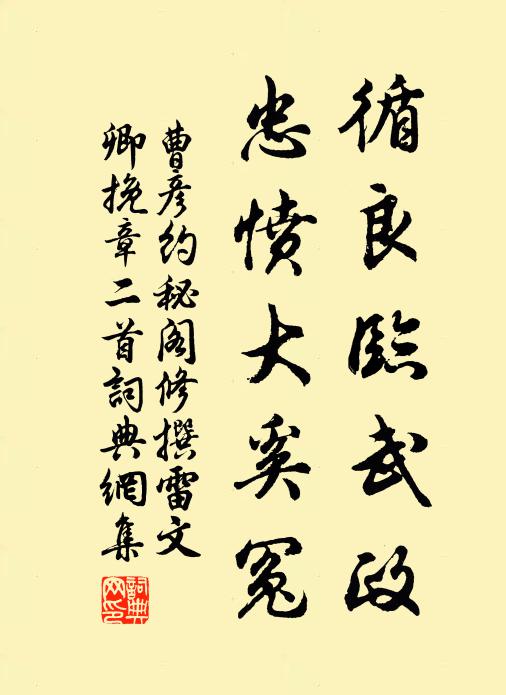 循良臨武政
忠憤大奚冤
曹彦約秘閣修撰雷文
卿挽章二首詞典網集
詞典網印